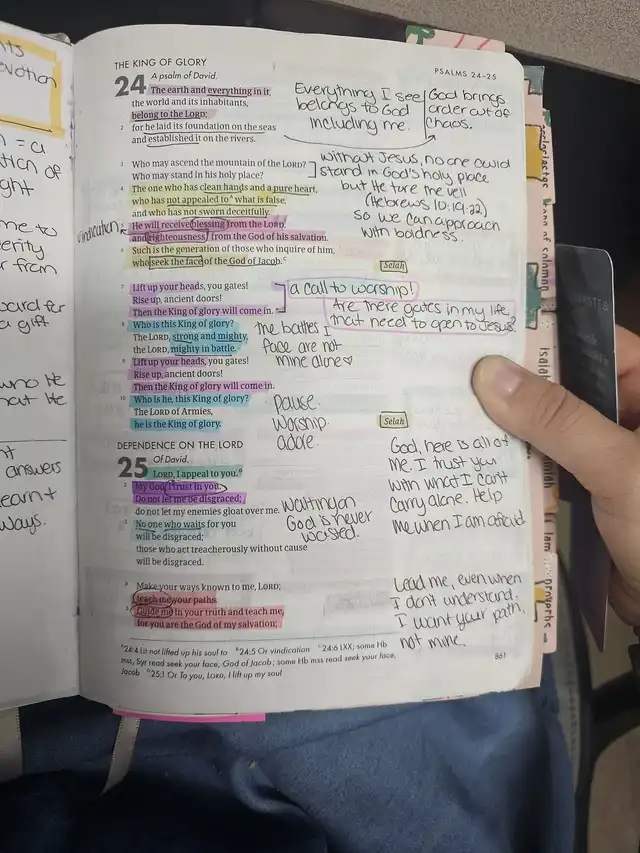 THE KING OF GLORY
PSALMS 24–25
24 A psalm of David.
1 The earth and everything in it,
the world and its inhabitants,
belong to the LORD;
2 for he laid its foundation on the seas
and established it on the rivers.
Everything I see
belongs to God
including me.
God brings
order out of
chaos.
3 Who may ascend the mountain of the LORD?
Who may stand in his holy place?
4 The one who has clean hands and a pure heart,
who has not appealed to A what is false,
and who has not sworn deceitfully.
5 He will receive blessing from the LORD,
and righteousness B from the God of his salvation.
6 Such is the generation of those who inquire of him,
who seek the face of the God of Jacob. C
Selah
vindication
without Jesus, no one could
stand in God's holy place
but He tore the veil
(Hebrews 10:19-22)
so we can approach
with boldness.
7 Lift up your heads, you gates!
Rise up, ancient doors!
Then the King of glory will come in.
8 Who is this King of glory?
The LORD, strong and mighty,
the LORD, mighty in battle.
9 Lift up your heads, you gates!
Rise up, ancient doors!
Then the King of glory will come in.
10 Who is he, this King of glory?
The LORD of Armies,
he is the King of glory.
Selah
a call to worship!
Are there gates in my life
that need to open to Jesus?
The battles I
face are not
mine alone ♡
pause.
worship.
adore.
DEPENDENCE ON THE LORD
25 Of David.
1 LORD, I appeal to you. D
2 My God, I trust in you.
Do not let me be disgraced;
do not let my enemies gloat over me.
3 No one who waits for you
will be disgraced;
those who act treacherously without cause
will be disgraced.
Waiting on
God is never
wasted.
God, here is all of
me. I trust you
with what I can't
carry alone. Help
me when I am afraid.
4 Make your ways known to me, LORD;
teach me your paths.
5 Guide me in your truth and teach me,
for you are the God of my salvation;
Lead me, even when
I don't understand.
I want your path,
not mine.
A 24:4 Lit not lifted up his soul to B 24:5 Or vindication C 24:6 LXX; some Hb
mss, Syr read seek your face, God of Jacob; some Hb mss read seek your face,
Jacob D 25:1 Or To you, LORD, I lift up my soul
861
ecclesiastes
song of solomon
isaiah
proverbs
evotion
= a
tion of
ght
me to
erity
r from
ward for
a gift
who He
hat He
answers
learnt
ways.